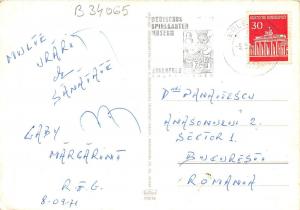 B 34065
MULTE
URĂRI
de
SĂNĂTATE
GABY
MĂRGĂRINT
R.F.G.
8-09-71
DEUTSCHES
SPIELKARTEN
MUSEUM
BIELEFELD
30
DEUTSCHE BUNDESPOST
D-nei DANAITESCU
ANASONULUI 2.
SECTOR 1
BUCUREȘTI
ROMÂNIA